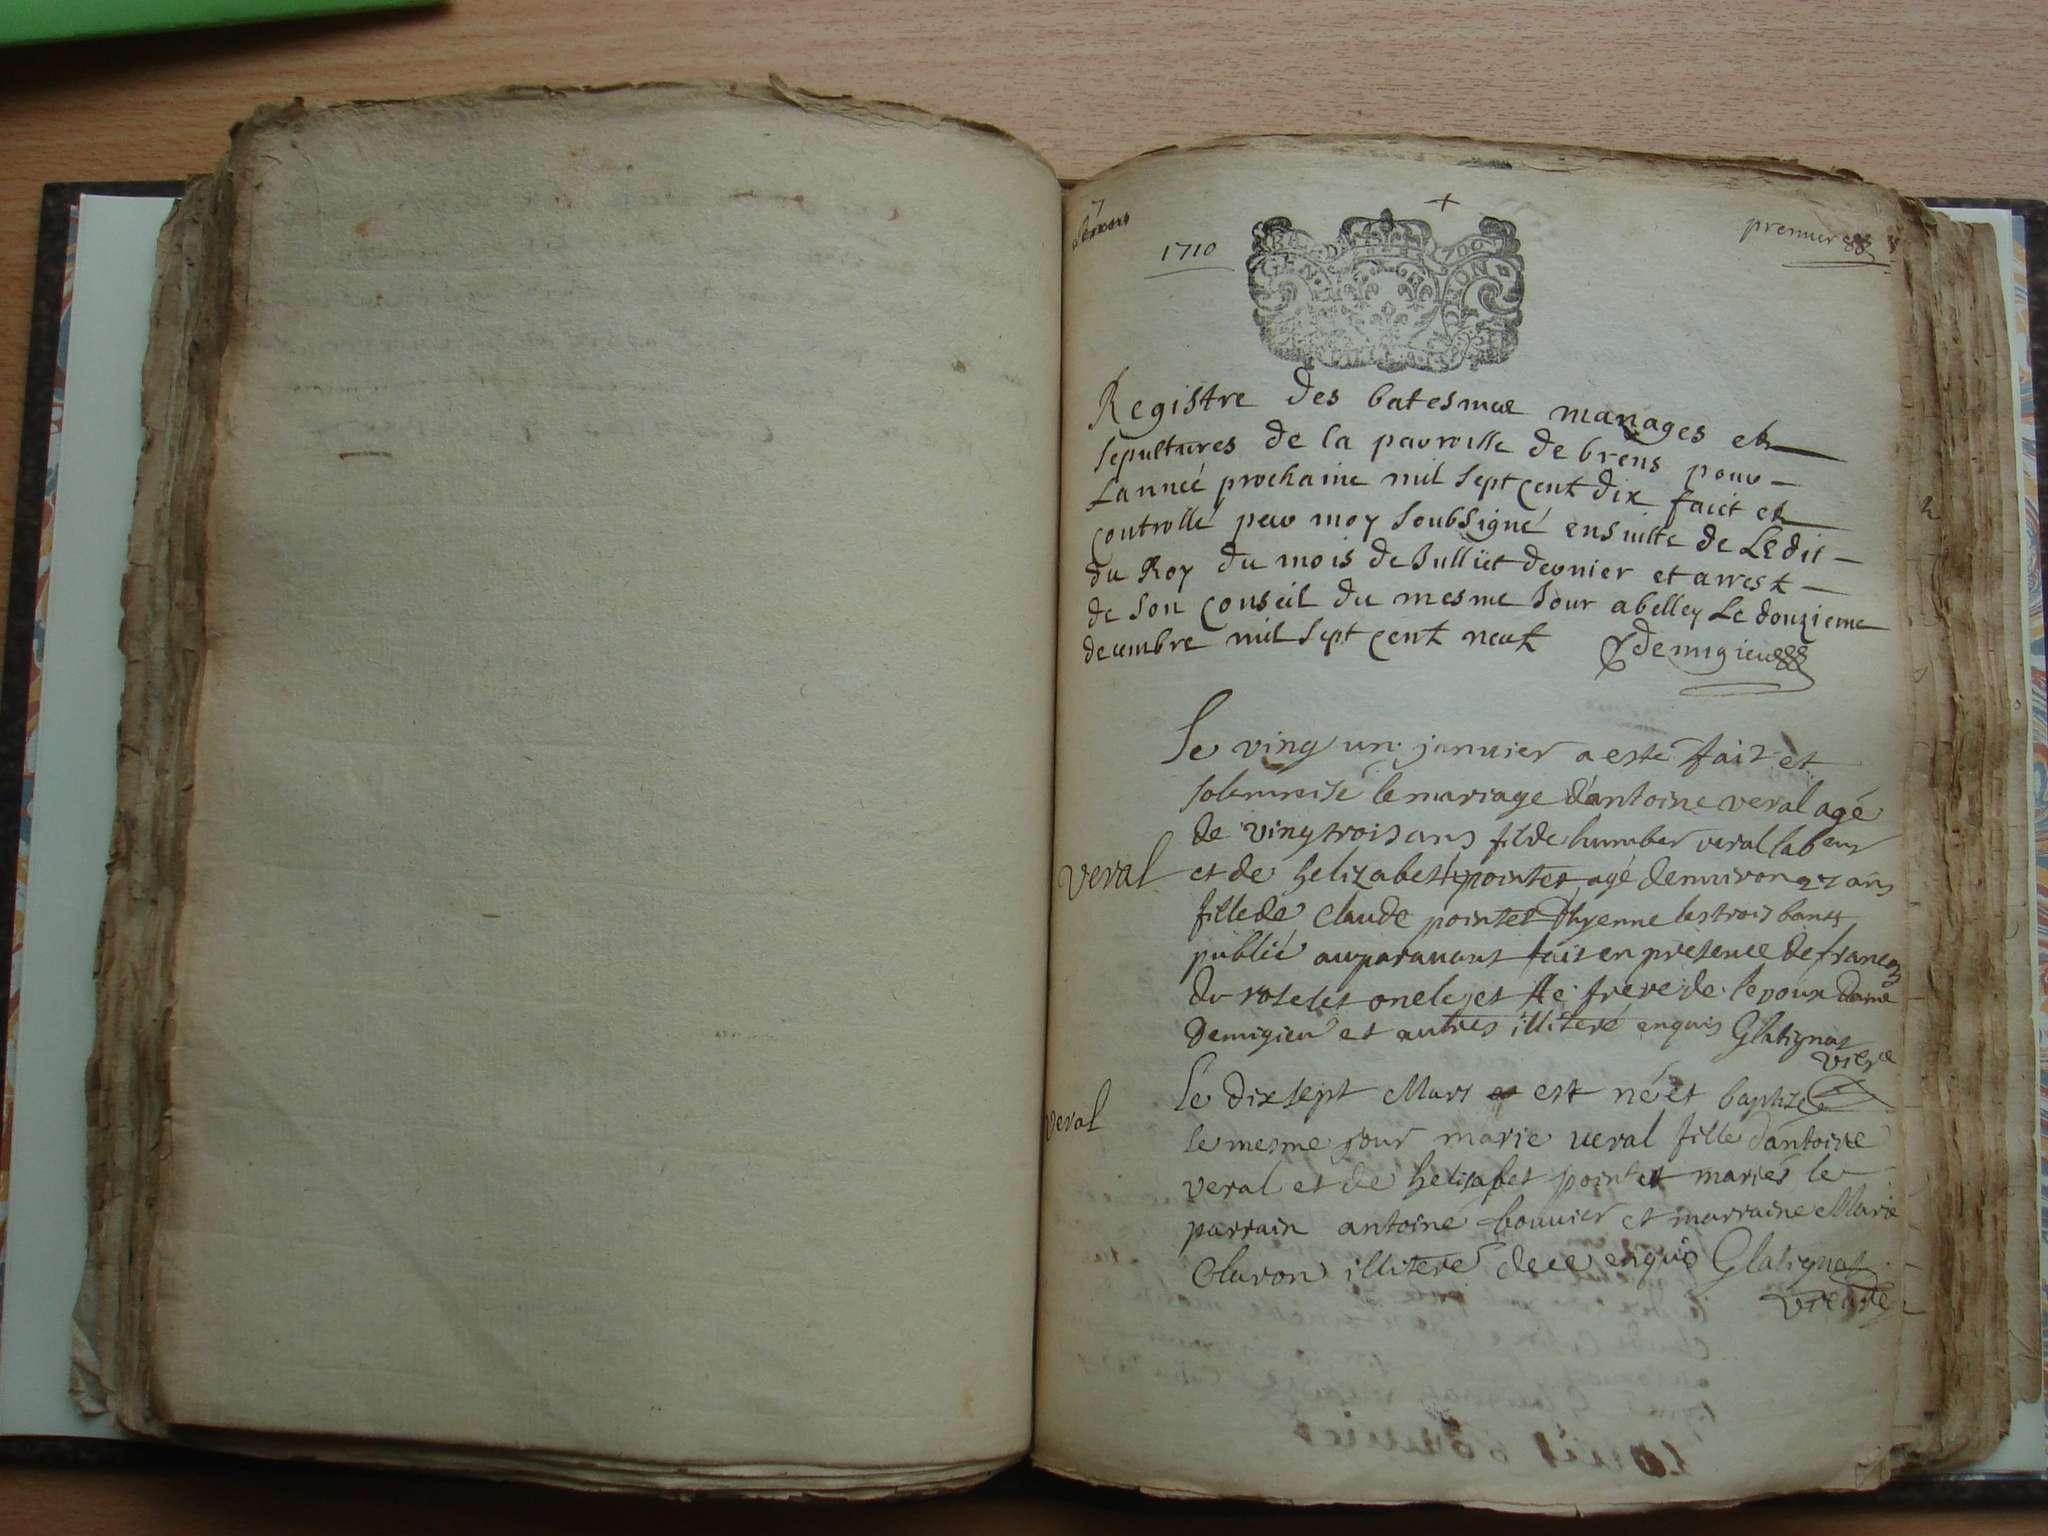 1710
premier
GEN
Registre des batesme mariages et
sepultures de la parroisse de brens pour
Lannée prochaine mil sept cent dix faict et
controllé par moy soubsigné ensuitte de LEdit
du Roy du mois de Julliet dernier et arrest
de son conseil du mesme Jour a belley Le douzieme
decembre mil sept cent neuf Demigieu
Le ving un janvier a este fait et
solemnisé le mariage d'antoine veral agé
de ving trois ans fil de humber veral labeur
Veral
et de helizabet pointet agé denviron 27 ans
fille de Claude pointet Dhyenne les trois bans
publié auparavant fait en presence de francois
du et frere de lepoux
Demigieu et autres illiteré enquis Glatignat
vicre
Veral
Le dix sept Mars est né et baptizé
le mesme jour marie veral fille d'antoine
veral et de helisabet pointet mariés le
parrain antoine bouvier et marraine Marie
Claron illiteré de ce enquis Glatignat
vicaire